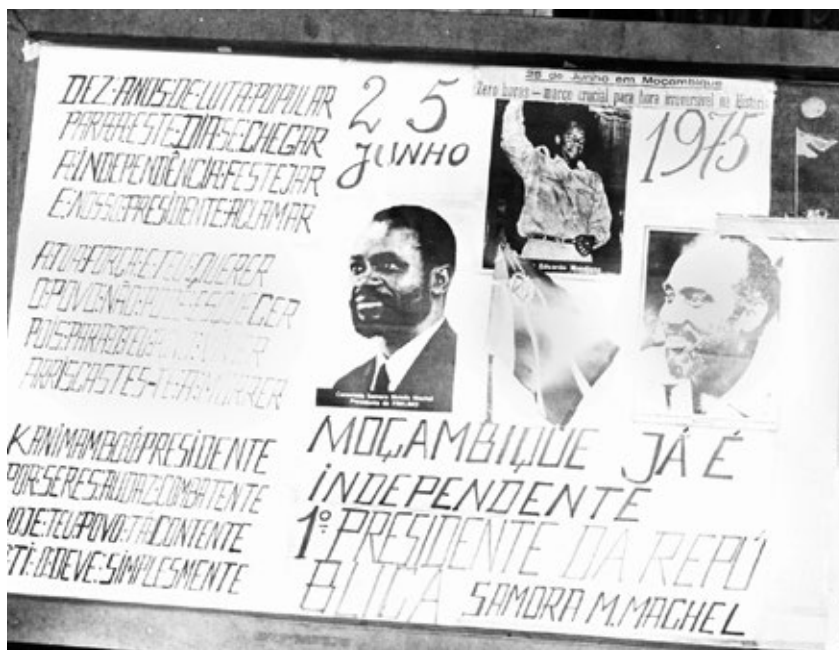 DEZ:ANOS:DE:LUTA:POPULAR
PARA:ESTE:DIA:SE:CHEGAR
A:INDEPENDÊNCIA:FESTEJAR
E:NOSSO:PRESIDENTE:ACLAMAR
A:TUA:FORÇA:E:TEU:QUERER
O:POVO:NÃO:PODE:ESQUECER
POIS:PARA:O:TEU
ARRISCASTES-TE:A:MORRER
KANIMAMBO:Ó:PRESIDENTE
POR:SERES:AUDAZ:COMBATENTE
HOJE:TEU:POVO:TÃO:CONTENTE
TI:O:DEVE:SIMPLESMENTE
25
JUNHO
25 de Junho em Moçambique
Zero horas — marco crucial para hora irreversível na História
1975
Eduardo
Camarada Samora Moisés Machel
Presidente da FRELIMO
MOÇAMBIQUE JÁ É
INDEPENDENTE
1º PRESIDENTE DA REPÚ
BLICA SAMORA M. MACHEL